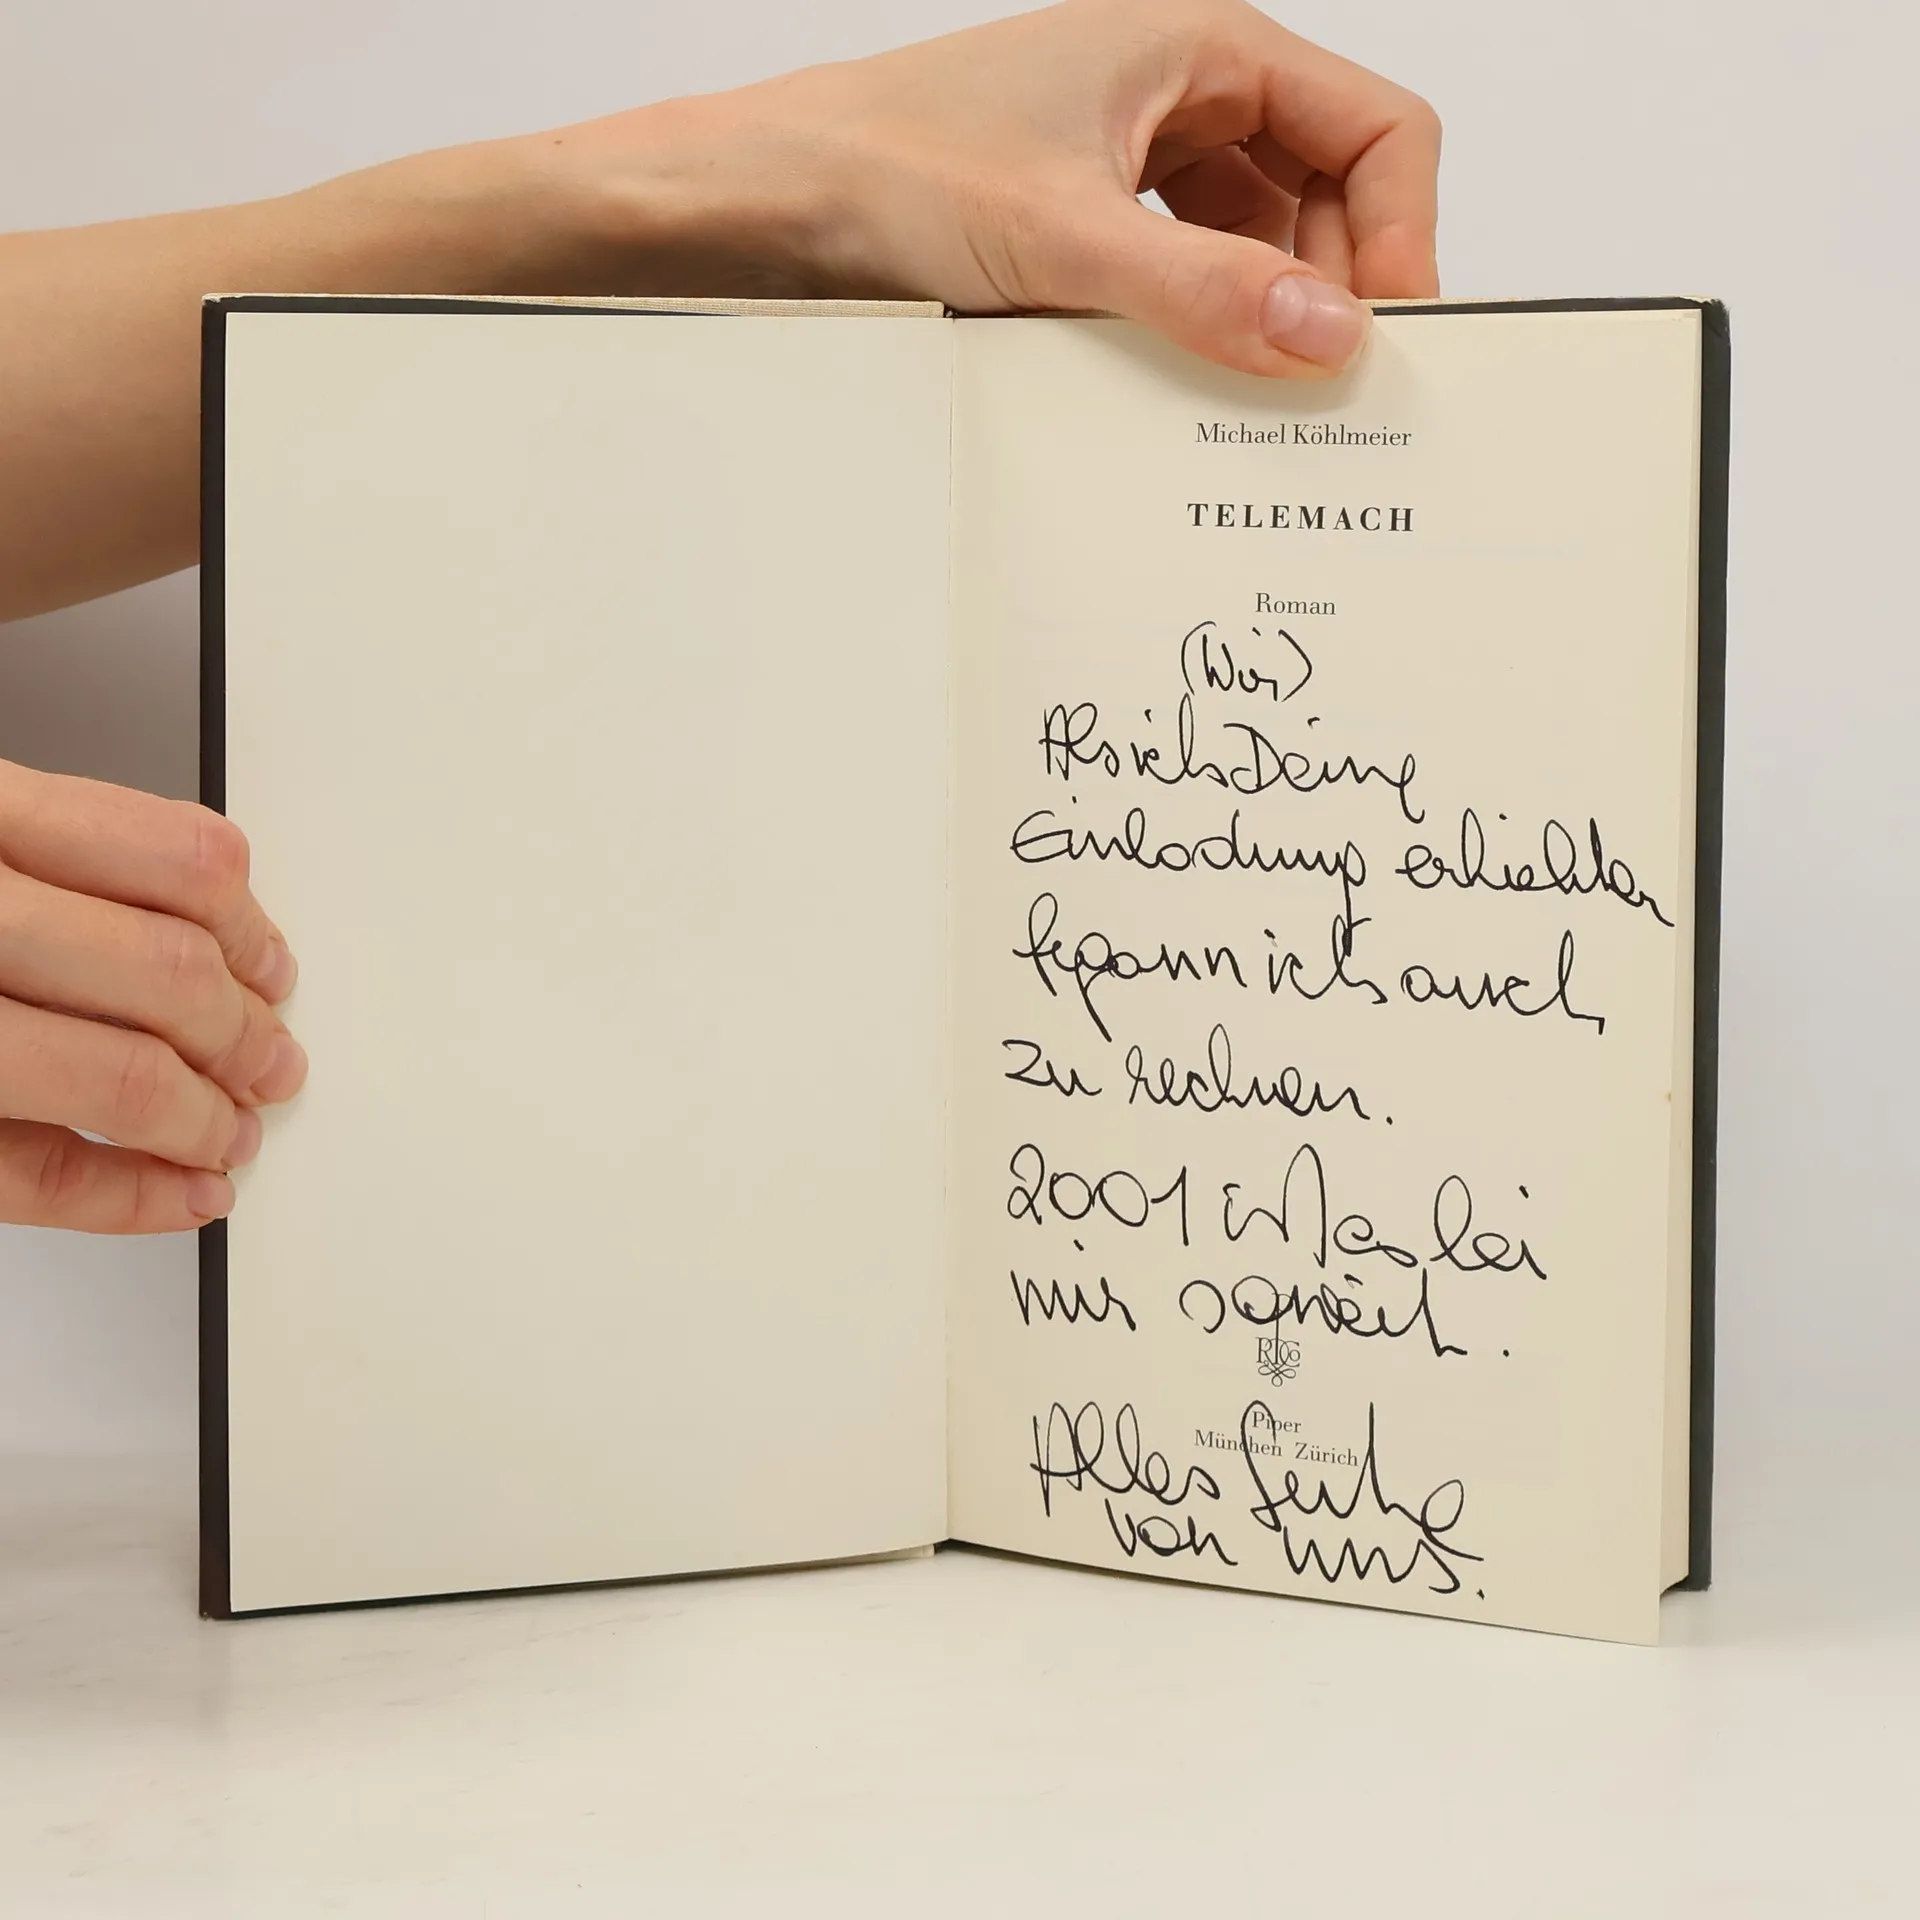 Michael Köhlmeier
TELEMACH
Roman
(Wir)
Als ich Deine
Einladung erhielten
begann ich auch
zu rechnen.
2001 ist es bei
mir soweit.
RPCo
Piper
München Zürich
Alles Gute
von uns.